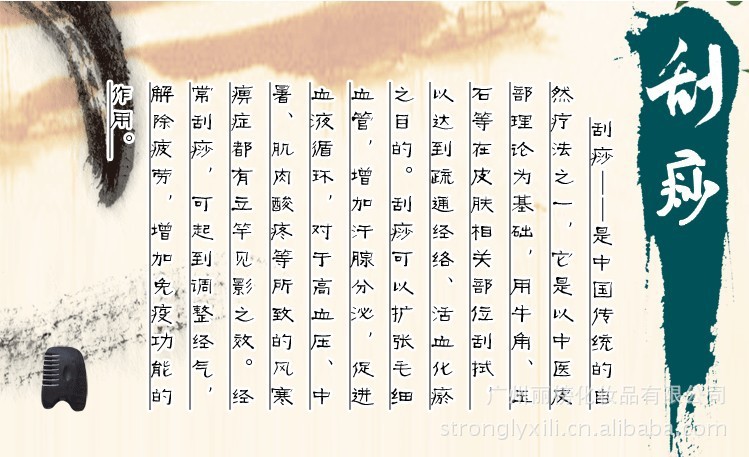 刮痧
刮痧——是中国传统的自
然疗法之一，它是以中医皮
部理论为基础，用牛角、玉
石等在皮肤相关部位刮拭
以达到疏通经络、活血化瘀
之目的。刮痧可以扩张毛细
血管，增加汗腺分泌，促进
血液循环，对于高血压、中
暑、肌肉酸疼等所致的风寒
痹症都有立竿见影之效。经
常刮痧，可起到调整经气，
解除疲劳，增加免疫功能的
作用。
广州丽梓化妆品有限公司
stronglyxili.cn.alibaba.com